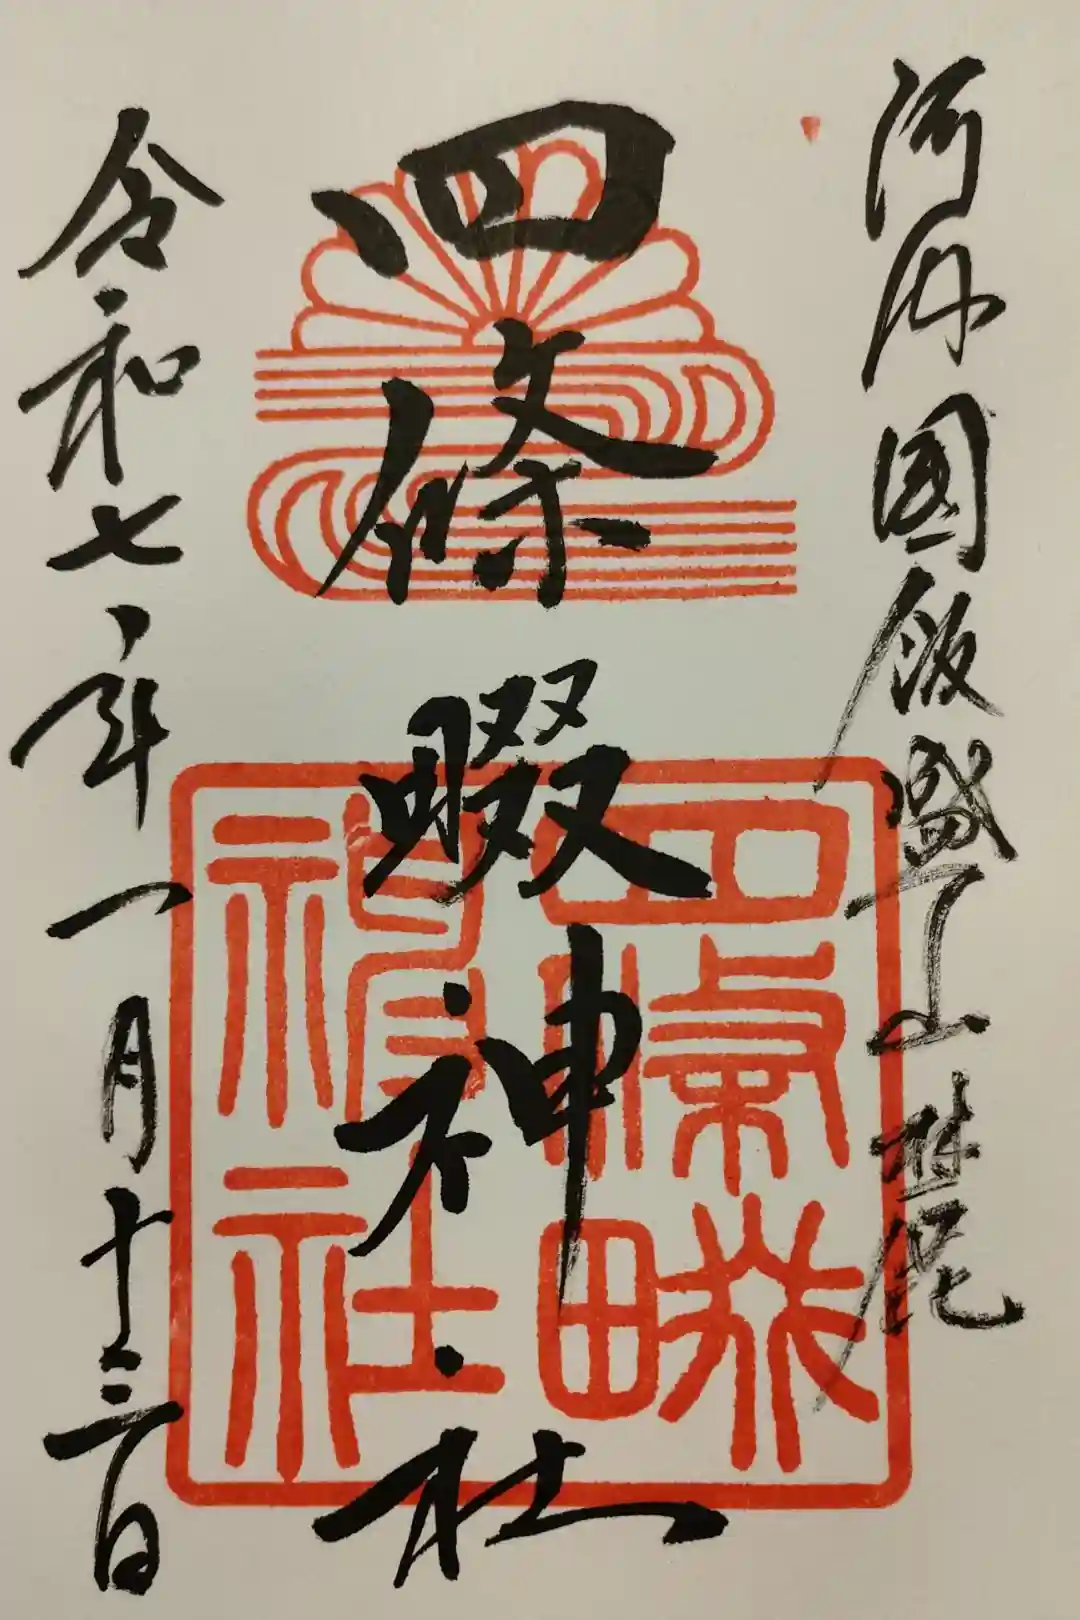 河内国飯盛山麓
四條畷神社
令和七年一月十三日
四條畷
神社